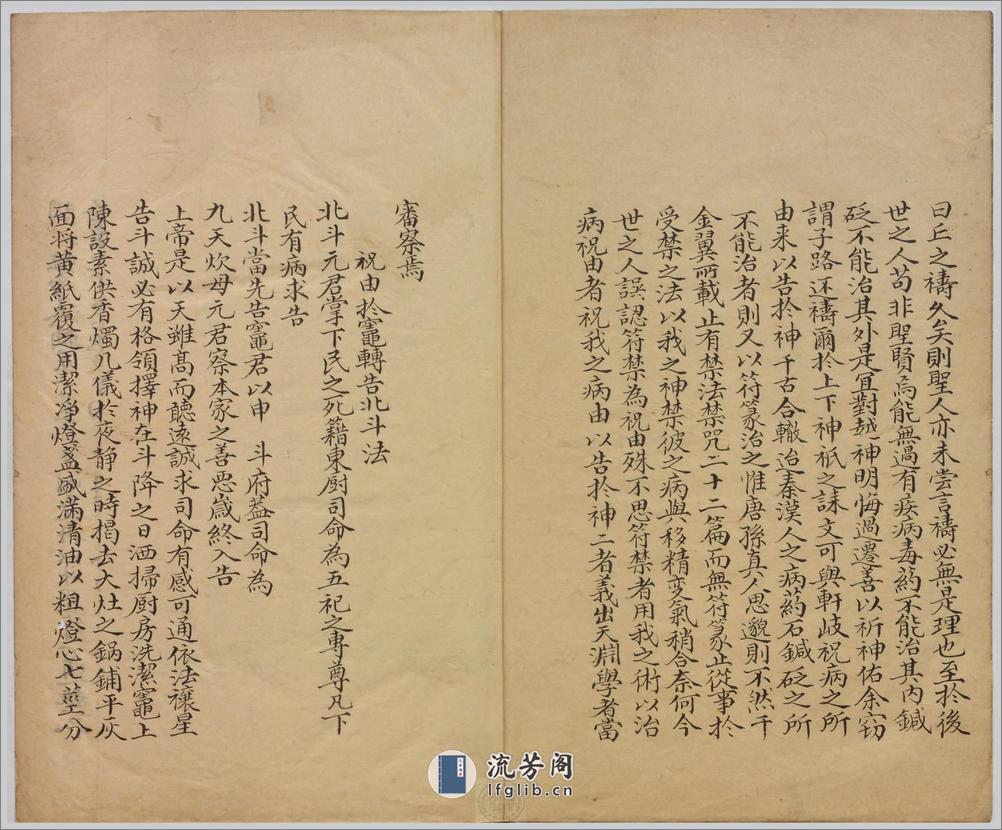 曰丘之禱久矣則聖人亦未嘗言禱必無是理也至於後
世之人苟非聖賢焉能無過有疾病毒药不能治其内鍼
砭不能治其外是宜對越神明悔過遷善以祈神佑余竊
謂子路还禱爾於上下神祇之誄文可與軒岐祝病之所
由来以告於神千古合轍迨秦漢人之病药石鍼砭之所
不能治者則又以符篆治之惟唐孫真人思邈則不然千
金翼所載止有禁法禁咒二十二篇而無符篆止從事於
受禁之法以我之神禁彼之病與移精变氣稍合奈何今
世之人誤認符禁為祝由殊不思符禁者用我之術以治
病祝由者祝我之病由以告於神二者義出天淵學者當
審察焉
祝由於竈轉告北斗法
北斗元君掌下民之死籍東厨司命為五祀之專尊凡下
民有病求告
北斗當先告竈君以申 斗府葢司命為
九天炊母元君察本家之善恶嵗終入告
上帝是以天雖髙而聽遠誠求司命有感可通依法禳星
告斗誠必有格領擇神在斗降之日洒掃厨房洗潔竈上
陳設素供香燭几儀於夜静之時揭去大灶之鍋鋪平灰
面将黄紙覆之用潔净燈盞盛满清油以粗燈心七莖分
流芳阁
lfglib.cn